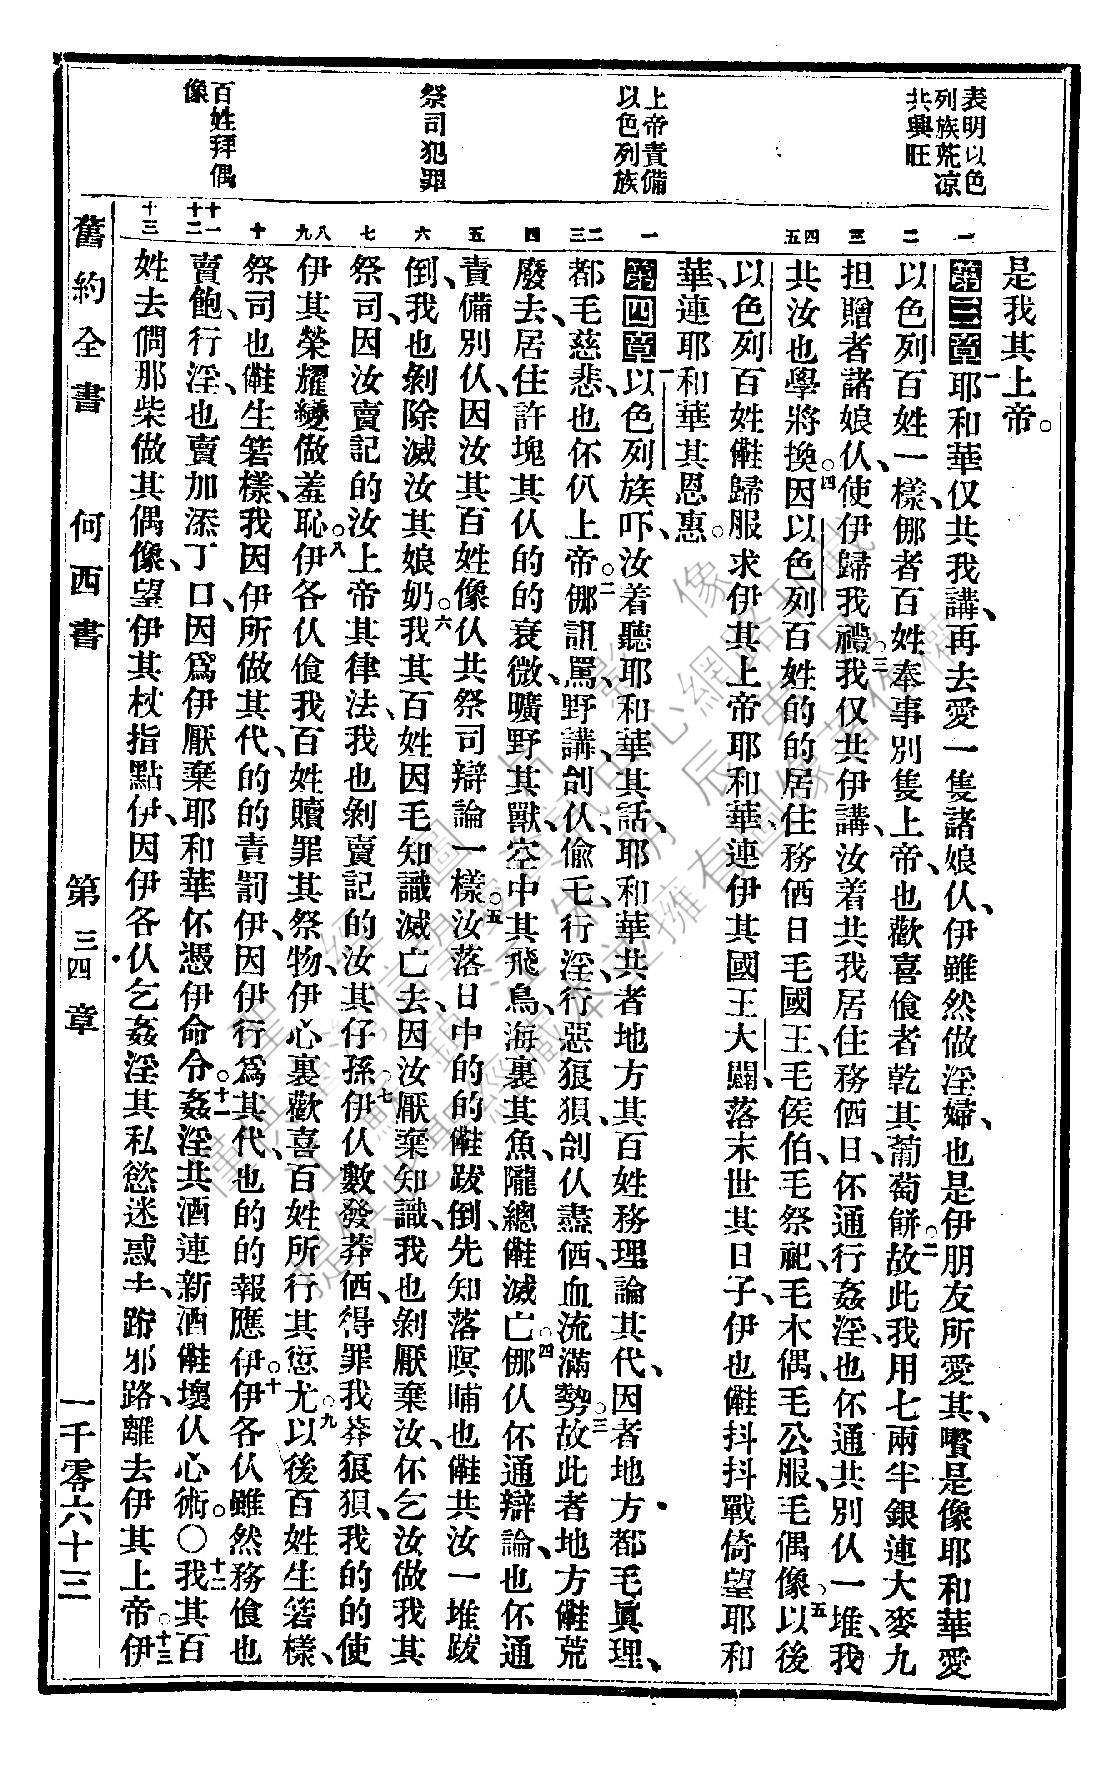 表明以色
列族荒凉
共興旺
上帝責備
以色列族
祭司犯罪
百姓拜偶
像
一
二
三
四五
一
二三
四
五
六
七
八九
十
十一十二
十三
是我其上帝。
第三章耶和華仅共我講、再去愛一隻諸娘仫、伊雖然做淫婦、也是伊朋友所愛其、嚽是像耶和華愛
以色列百姓一樣、㑚者百姓奉事別隻上帝、也歡喜飠者乾其葡萄餅。二故此我用七兩半銀連大麥九
担贈者諸娘仫、使伊歸我。三禮我仅共伊講、汝着共我居住務価日、伓通行姦淫、也伓通共別仫一堆、我
共汝也學將換。四因以色列百姓的的居住務価日毛國王、毛侯伯、毛祭祀、毛木偶、毛公服、毛偶像。五以後
以色列百姓𠆧歸服求伊其上帝耶和華、連伊其國王大闢、落末世其日子、伊也𠆧抖抖戰倚望耶和
華、連耶和華其恩惠。
第四章以色列族吓、汝着聽耶和華其話、耶和華共者地方其百姓務理論其代、因者地方都毛眞理、
都毛慈悲、也伓仈上帝。二㑚詛罵、野講、刣仫、偷乇、行淫、行惡狼狽、刣仫盡価、血流滿勢。三故此者地方𠆧荒
廢去、居住許塊其仫的的衰微、曠野其獸、空中其飛鳥、海裏其魚、隴總𠆧滅亡。四㑚仫伓通辯論、也伓通
責備別仫、因汝其百姓像仫共祭司辯論一樣。五汝落日中的的𠆧跋倒、先知落暝晡也𠆧共汝一堆跋
倒、我也剝除滅汝其娘奶。六我其百姓因毛知識滅亡去、因汝厭棄知識、我也剝厭棄汝、伓乞汝做我其
祭司、因汝賣記的汝上帝其律法、我也剝賣記的汝其仔孫。七伊仫數發莽価、得罪我莽狼狽、我的的使
伊其榮耀變做羞恥。八伊各仫飠我百姓贖罪其祭物、伊心裏歡喜百姓所行其愆尤。九以後百姓生箬樣、
祭司也𠆧生箬樣、我因伊所做其代、的的責罰伊、因伊行爲其代、也的的報應伊。十伊各仫雖然務飠也
賣飽、行淫、也賣加添丁口、因爲伊厭棄耶和華、伓憑伊命令。十一姦淫共酒連新酒𠆧壞仫心術。〇十二我其百
姓去僩那柴做其偶像、望伊其杖指點伊、因伊各仫乞姦淫其私慾迷惑、𨑨跲邪路、離去伊其上帝。十三伊
舊約全書　何西書　第三四章　一千零六十三